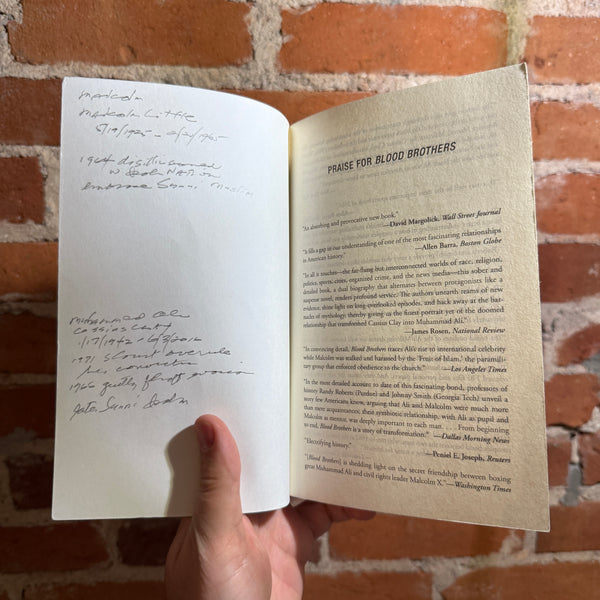 malcolm
malcolm Little
5/19/1925 - 2/21/1965
1964 disillusioned
w Islam NATION
embrace Sunni Muslim
muhammad Ali
Cassius Clay
1/17/1942 - 6/3/2016
1971 S Court overrule
his conviction
1966 guilty draft evasion
later Sunni Islam
PRAISE FOR BLOOD BROTHERS
"An absorbing and provocative new book."
—David Margolick, Wall Street Journal
"It fills a gap in our understanding of one of the most fascinating relationships
in American history."
—Allen Barra, Boston Globe
"In all it touches—the far-flung but interconnected worlds of race, religion,
politics, sports, cities, organized crime, and the news media—this sober and
detailed book, a dual biography that alternates between protagonists like a
suspense novel, renders profound service. The authors unearth reams of new
evidence, shine light on long-overlooked episodes, and hack away at the bar-
nacles of mythology, thereby giving us the finest portrait yet of the doomed
relationship that transformed Cassius Clay into Muhammad Ali."
—James Rosen, National Review
"In convincing detail, Blood Brothers traces Ali's rise to international celebrity
while Malcolm was stalked and harassed by the 'Fruit of Islam,' the paramili-
tary group that enforced obedience to the church."
—Los Angeles Times
"In the most detailed account to date of this fascinating bond, professors of
history Randy Roberts (Purdue) and Johnny Smith (Georgia Tech) unveil a
story few Americans know, arguing that Ali and Malcolm were much more
than mere acquaintances; their symbiotic relationship, with Ali as pupil and
Malcolm as mentor, was deeply important to each man. . . . From beginning
to end, Blood Brothers is a story of transformation."
—Dallas Morning News
"Electrifying history."
—Peniel E. Joseph, Reuters
"[Blood Brothers] is shedding light on the secret friendship between boxing
great Muhammad Ali and civil rights leader Malcolm X."—Washington Times